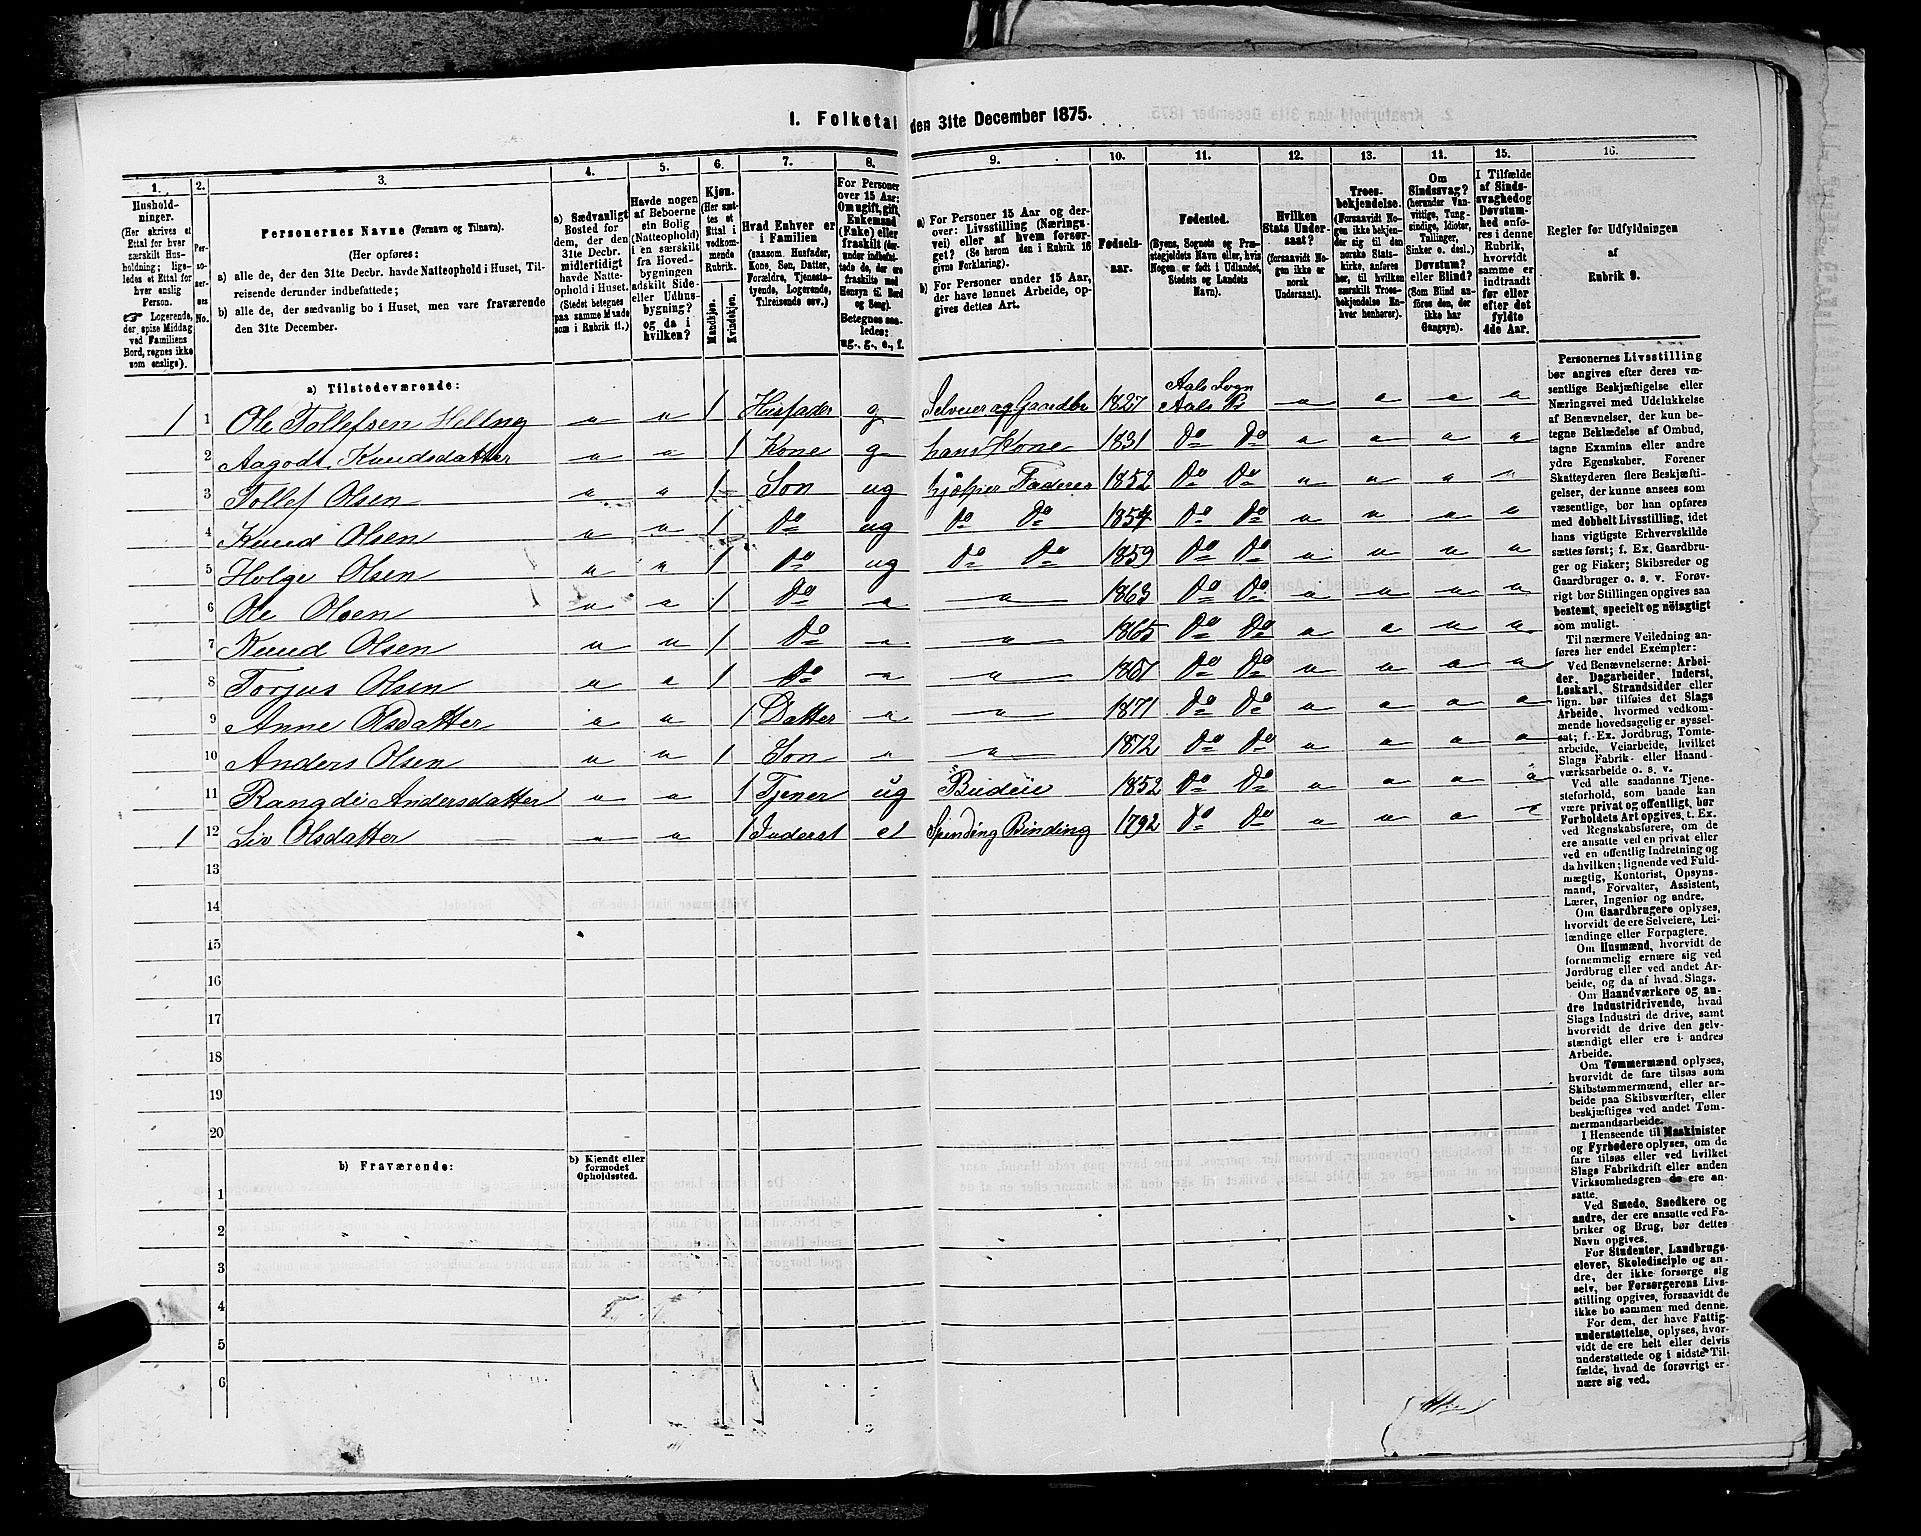 I. Folketal den 31te December 1875.
1.
2.
3.
4.
5.
6.
7.
8.
9.
10.
11.
12.
13.
14.
15.
16.
Hushold-
ninger.
(Her skrives et
Ettal for hver
særskilt Hus-
holdning; lige-
ledes et Ettal for
hver enslig
Person.
☞ Logerende,
der spise Middag
ved Familiens
Bord, regnes ikke
som enslige).
Per-
so-
ner-
nes
No.
Personernes Navne (Fornavn og Tilnavn).
(Her opføres:
a) alle de, der den 31te Decbr. havde Natteophold i Huset, Til-
reisende derunder indbefattede;
b) alle de, der sædvanlig bo i Huset, men vare fraværende
den 31te December.
a) Sædvanligt
Bosted for
dem, der den
31te Decbr.
midlertidigt
havde Natte-
ophold i Huset.
(Stedet betegnes
paa samme Maade
som i Rubrik 11.)
Havde nogen
af Beboerne
sin Bolig
(Natteophold)
i en særskilt
fra Hoved-
bygningen
adskilt Side-
eller Udhus-
bygning?
og da i
hvilken?
Kjøn.
(Her sæt-
tes et
Ettal i
vedkom-
mende
Rubrik.
Mandkjøn.
Kvindekjøn.
Hvad Enhver er
i Familien
(saasom Husfader,
Kone, Søn, Datter,
Forældre, Tjeneste-
tyende, Logerende,
Tilreisende osv.)
For Personer
over 15 Aar:
Om ugift, gift,
Enkemand
(Enke) eller
fraskilt (der-
under indbefat-
tede de, der ere
fraskilte med
Hensyn til Bord
og Seng).
Betegnes saa-
ledes:
ug., g., e., f.
a) For Personer 15 Aar og der-
over: Livsstilling (Nærings-
vei) eller af hvem forsør-
get? (Se herom den i Rubrik 16
givne Forklaring).
b) For Personer under 15 Aar,
der have lønnet Arbeide, op-
gives dettes Art.
Fødsels-
aar.
Fødested.
(Byens, Sognets og Præ-
stegjeldets Navn eller, hvis
Nogen er født i Udlandet,
Stedets og Landets
Navn).
Hvilken
Stats Under-
saat?
(forsaavidt No-
gen ikke er
norsk
Undersaat).
Troes-
bekjendelse.
(Forsaavidt No-
gen ikke bekjen-
der sig til den
norske Stats-
kirke, anføres
her, til hvilken
særskilt Troes-
bekjendelse En-
hver henhører).
Om
Sindssvag?
(herunder Van-
vittige, Idioter,
Tullinger,
Sinker o. desl.)
Døvstum?
eller Blind?
(Som Blind an-
føres den, der
ikke har
Gangsyn).
I Tilfælde
af Sinds-
svaghed og
Døvstum-
hed anfø-
res i denne
Rubrik,
hvorvidt
samme er
indtraadt
før eller
efter det
fyldte
4de Aar.
Regler for Udfyldningen
af
Rubrik 9.
a) Tilstedeværende:
1 1 Ole Tollefsen 1 Husfader g Selveier og Gaardbr 1827 Aals Sogn
Aals Pr
2 Aagodt Knudsdatter 1 Kone g hans Kone 1831 Do Do
3 Tollef Olsen 1 Søn ug hjælper Faderen 1852 Do Do
4 Knud Olsen 1 Do ug Do Do 1854 Do Do
5 Holge Olsen 1 Do ug Do Do 1859 Do Do
6 Ole Olsen 1 Do 1863 Do Do
7 Knud Olsen 1 Do 1865 Do Do
8 Torjus Olsen 1 Do 1867 Do Do
9 Anne Olsdatter 1 Datter 1871 Do Do
10 Anders Olsen 1 Søn 1872 Do Do
11 Rangdi Andersdatter 1 Tjener ug Budeie 1852 Do Do
1 12 Liv Olsdatter 1 Inderst e Spinding Binding 1792 Do Do
13
14
15
16
17
18
19
20
b) Fraværende:
b) Kjendt eller
formodet
Opholdssted.
1
2
3
4
5
6
Personernes Livsstilling
bør angives efter deres væ-
sentlige Beskjæftigelse eller
Næringsvei med Udelukkelse
af Benævnelser, der kun be-
tegne Beklædelse af Ombud,
tagne Examina eller andre
ydre Egenskaber. Forener
Skatteyderen flere Beskjæfti-
gelser, der kunne ansees som
væsentlige, bør han opføres
med dobbelt Livsstilling, idet
hans vigtigste Erhvervskilde
sættes først; f. Ex. Gaardbru-
ger og Fisker; Skibsreder og
Gaardbruger o. s. v. Forøv-
rigt bør Stillingen opgives saa
bestemt, specielt og nöiagtigt
som muligt.
Til nærmere Veiledning an-
føres her endel Exempler:
Ved Benævnelserne: Arbei-
der, Dagarbeider, Inderst,
Løskarl, Strandsidder eller
lign. bør tilføies det Slags
Arbeide, hvormed vedkom-
mende hovedsagelig er syssel-
sat; f. Ex. Jordbrug, Tomte-
arbeide, Veiarbeide, hvilket
Slags Fabrik- eller Haand-
værksarbeide o. s. v.
Ved alle saadanne Tjene-
steforhold, som baade kan
være privat og offentligt, bør
Forholdets Art opgives, t. Ex.
ved Regnskabsførere, om de
ere ansatte ved en privat eller
ved en offentlig Indretning og
da hvilken; lignende ved Fuld-
mægtig, Kontorist, Opsyns-
mand, Forvalter, Assistent,
Lærer, Ingeniør og andre.
Om Gaardbrugere oplyses,
hvorvidt de ere Selveiere, Lei-
lændinge eller Forpagtere.
Om Husmænd, hvorvidt de
fornemmelig ernære sig ved
Jordbrug eller ved andet Ar-
beide, og da af hvad Slags.
Om Haandværkere og an-
dre industridrivende, hvad
Slags Industri de drive, samt
hvorvidt de drive den selv-
stændigt eller ere i andres
Arbeide.
Om Tømmermænd oplyses,
hvorvidt de fare tilsøs som
Skibstømmermænd, eller ar-
beide paa Skibsværfter, eller
beskjæftiges ved andet Tøm-
mermandsarbeide.
I Henseende til Maskinister
og Fyrbødere oplyses, om de
fare tilsøs eller ved hvilket
Slags Fabrikdrift eller anden
Virksomhedsgren de ere an-
satte.
Ved Smede, Snedkere og
andre, der ere ansatte ved Fa-
briker og Brug, bør dettes
Navn opgives.
For Studenter, Landbrugs-
elever, Skoledisciple og an-
dre, der ikke forsørge sig
selv, bør Forsørgerens Livs-
stilling opgives, forsaavidt de
ikke bo sammen med denne.
For dem, der have Fattig-
understøttelse, oplyses, hvor-
vidt de ere helt eller delvis
understøttede og i sidste Til-
fælde, hvad de forøvrigt er-
nære sig ved.